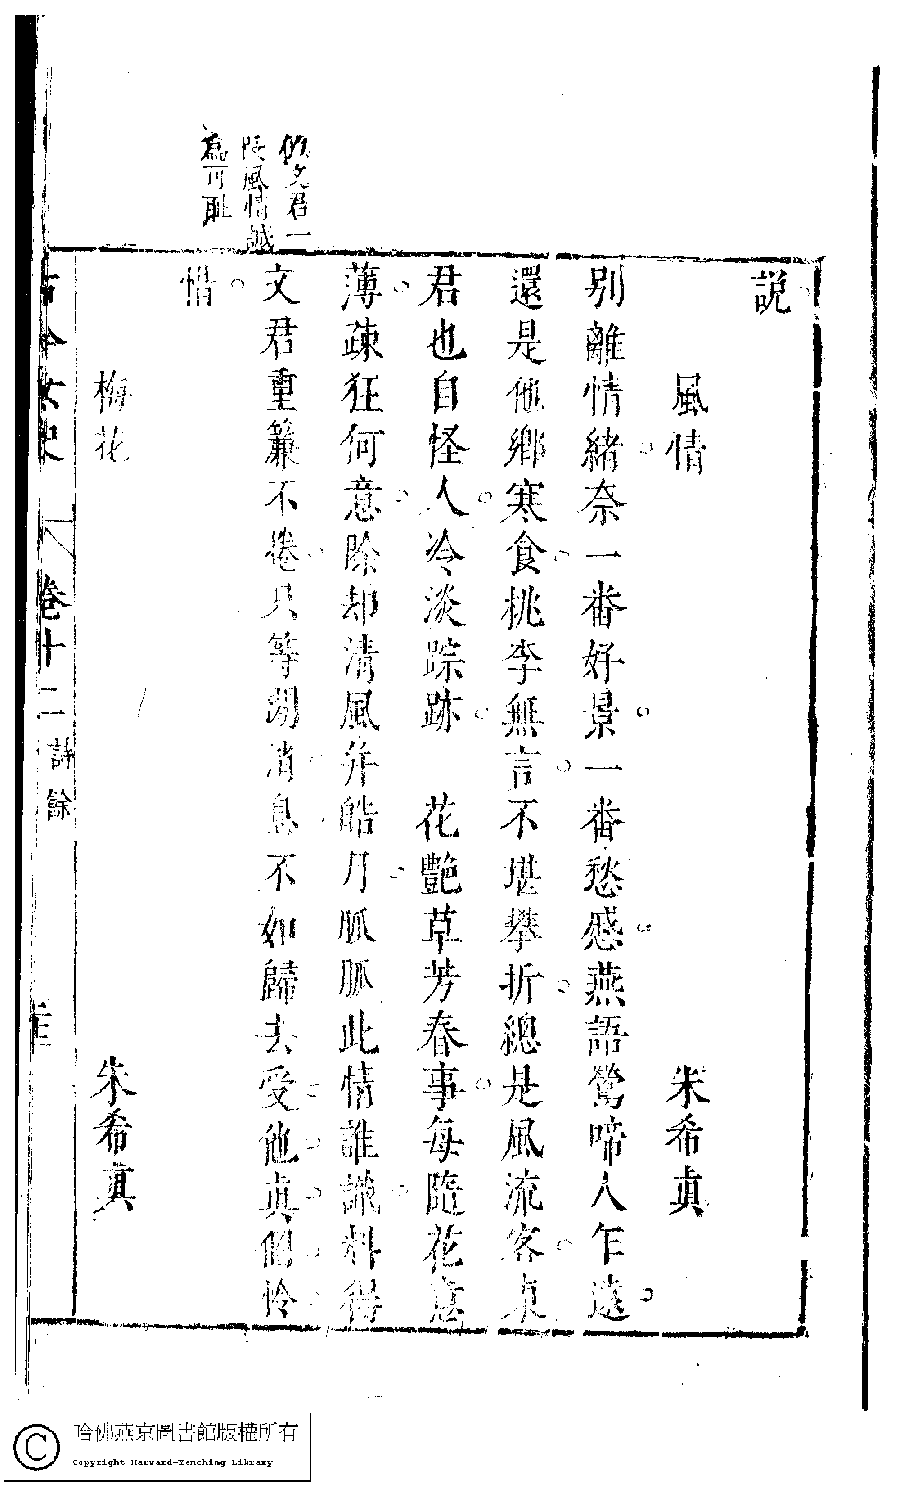 説
風情　朱希真
別離情緒奈一番好景一番愁慼燕語鶯啼人乍遠
還是他鄉寒食桃李無言不堪攀折總是風流客東
君也自怪人冷淡踪跡　花艷草芳春事每隨花意
薄疎狂何意除却清風并皓月脈脈此情誰識料得
文君重簾不捲只等閒消息不如歸去受他真個怜
惜
梅花　朱希真
古今女史　卷十二　詩餘
文君一
段風情誠
為可恥
哈佛燕京圖書館版權所有
Copyright Harvard-Yenching Library